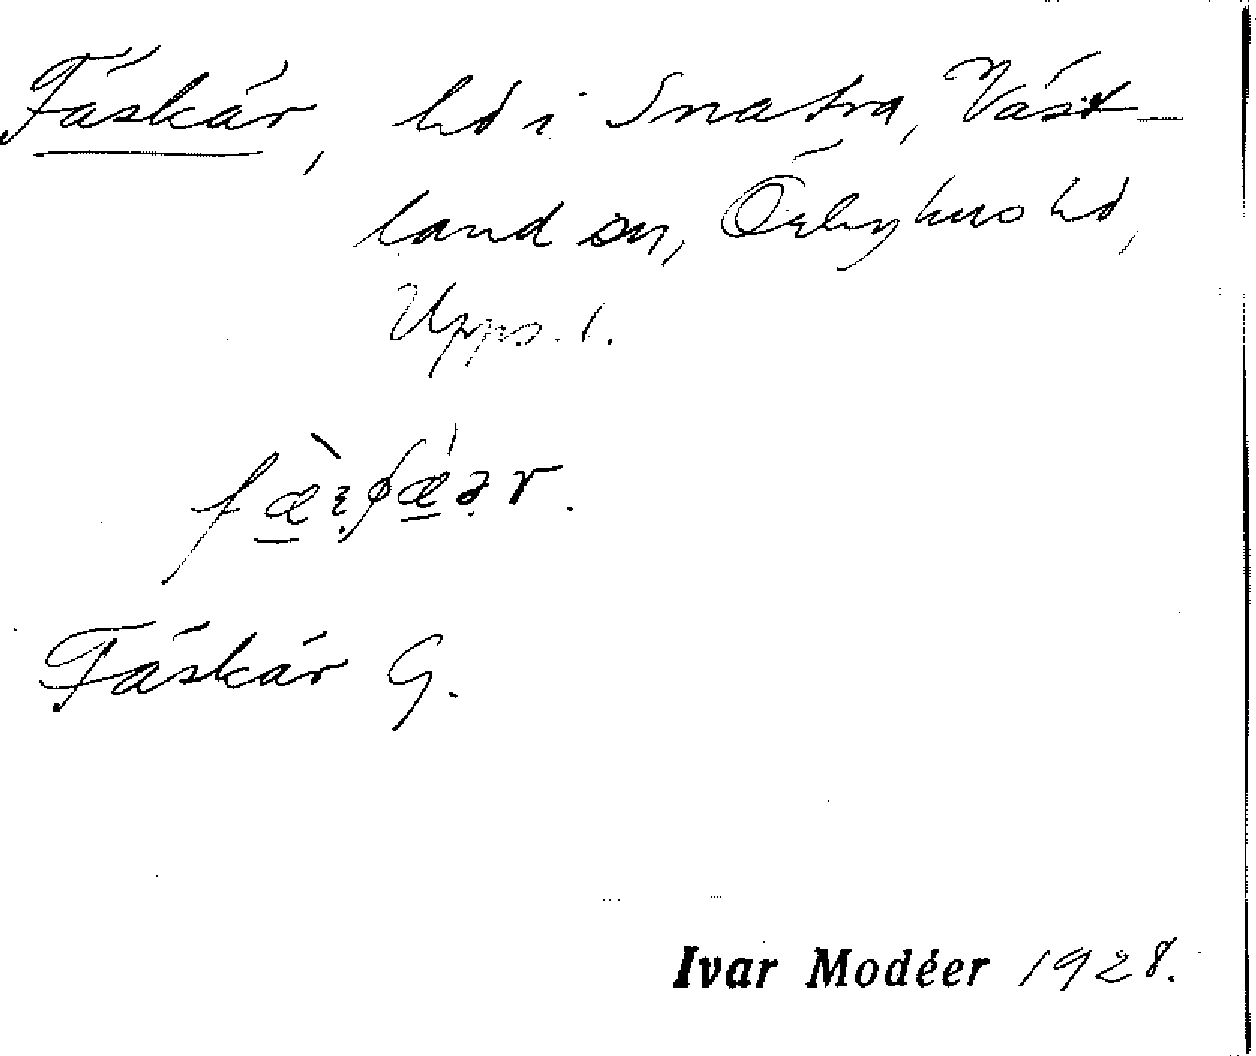 Fäskär, hd i Snatra, Väst-
land sn, Örbyhus hd,
Upps. l.
Fäskär G.
Ivar Modéer 1928.